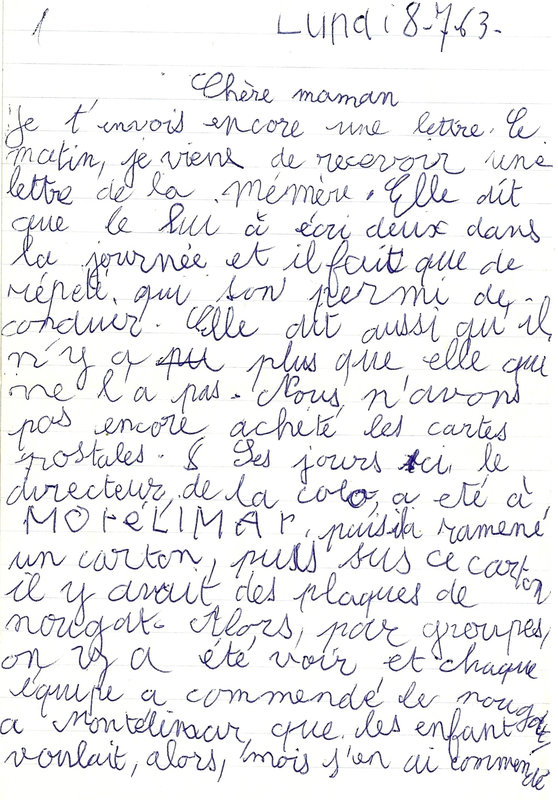 1
Lundi 8-7-63-
Chère maman
Je t'envois encore une lettre. Ce
matin, je viens de recevoir une
lettre de la Mémère. Elle dit
que le lui à écri deux dans
la journée et il fait que de
répété qui son permi de
conduer. Elle dit aussi qu'il
n'y a plus que elle qui
ne l'a pas. Nous n'avons
pas encore acheté les cartes
postales. Ses jours ici le
directeur de la colo, a eté à
MOTéLIMAr, puis la ramené
un carton, puis sus ce carton
il y avait des plaques de
nougat. Alors, par groupes,
on y a été voir et chaque
équipe a commendé le nougat
a Montélimar, que les enfant
voulait, alors, mois j'en ai commendé